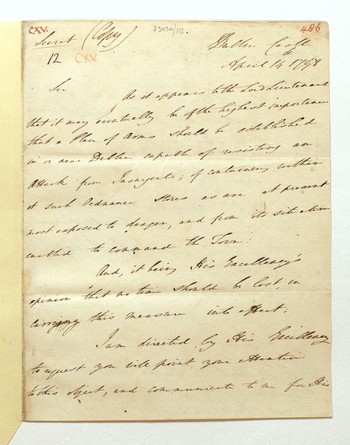 CXV.
486
Secret (Copy)
12
CXV
Dublin Castle
April 14 1798
Sir
As it appears to the Lord Lieutenant
that it may eventually be of the highest importance
that a Place of Arms should be established
in or near Dublin capable of resisting an
Attack from Insurgents, of containing within
it such Ordnance Stores as are at present
most exposed to danger, and from its situation
enabled to command the Town:
And, it being His Excellency's
opinion that no time should be lost in
carrying this measure into effect;
I am directed by His Excellency
to request you will point your attention
to this object, and communicate to me for His